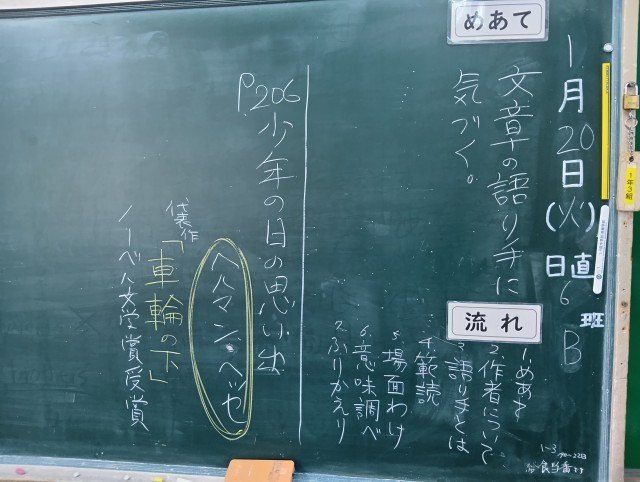 1月20日(火)
日直6班B
めあて
文章の語り手に
気づく。
流れ
1.めあて
2.作者について
3.語り手とは
4.範読
5.場面わけ
6.意味調べ
7.ふりかえり
P206 少年の日の思い出
ヘルマン・ヘッセ
代表作
「車輪の下」
ノーベル文学賞受賞
1年3組
1-3